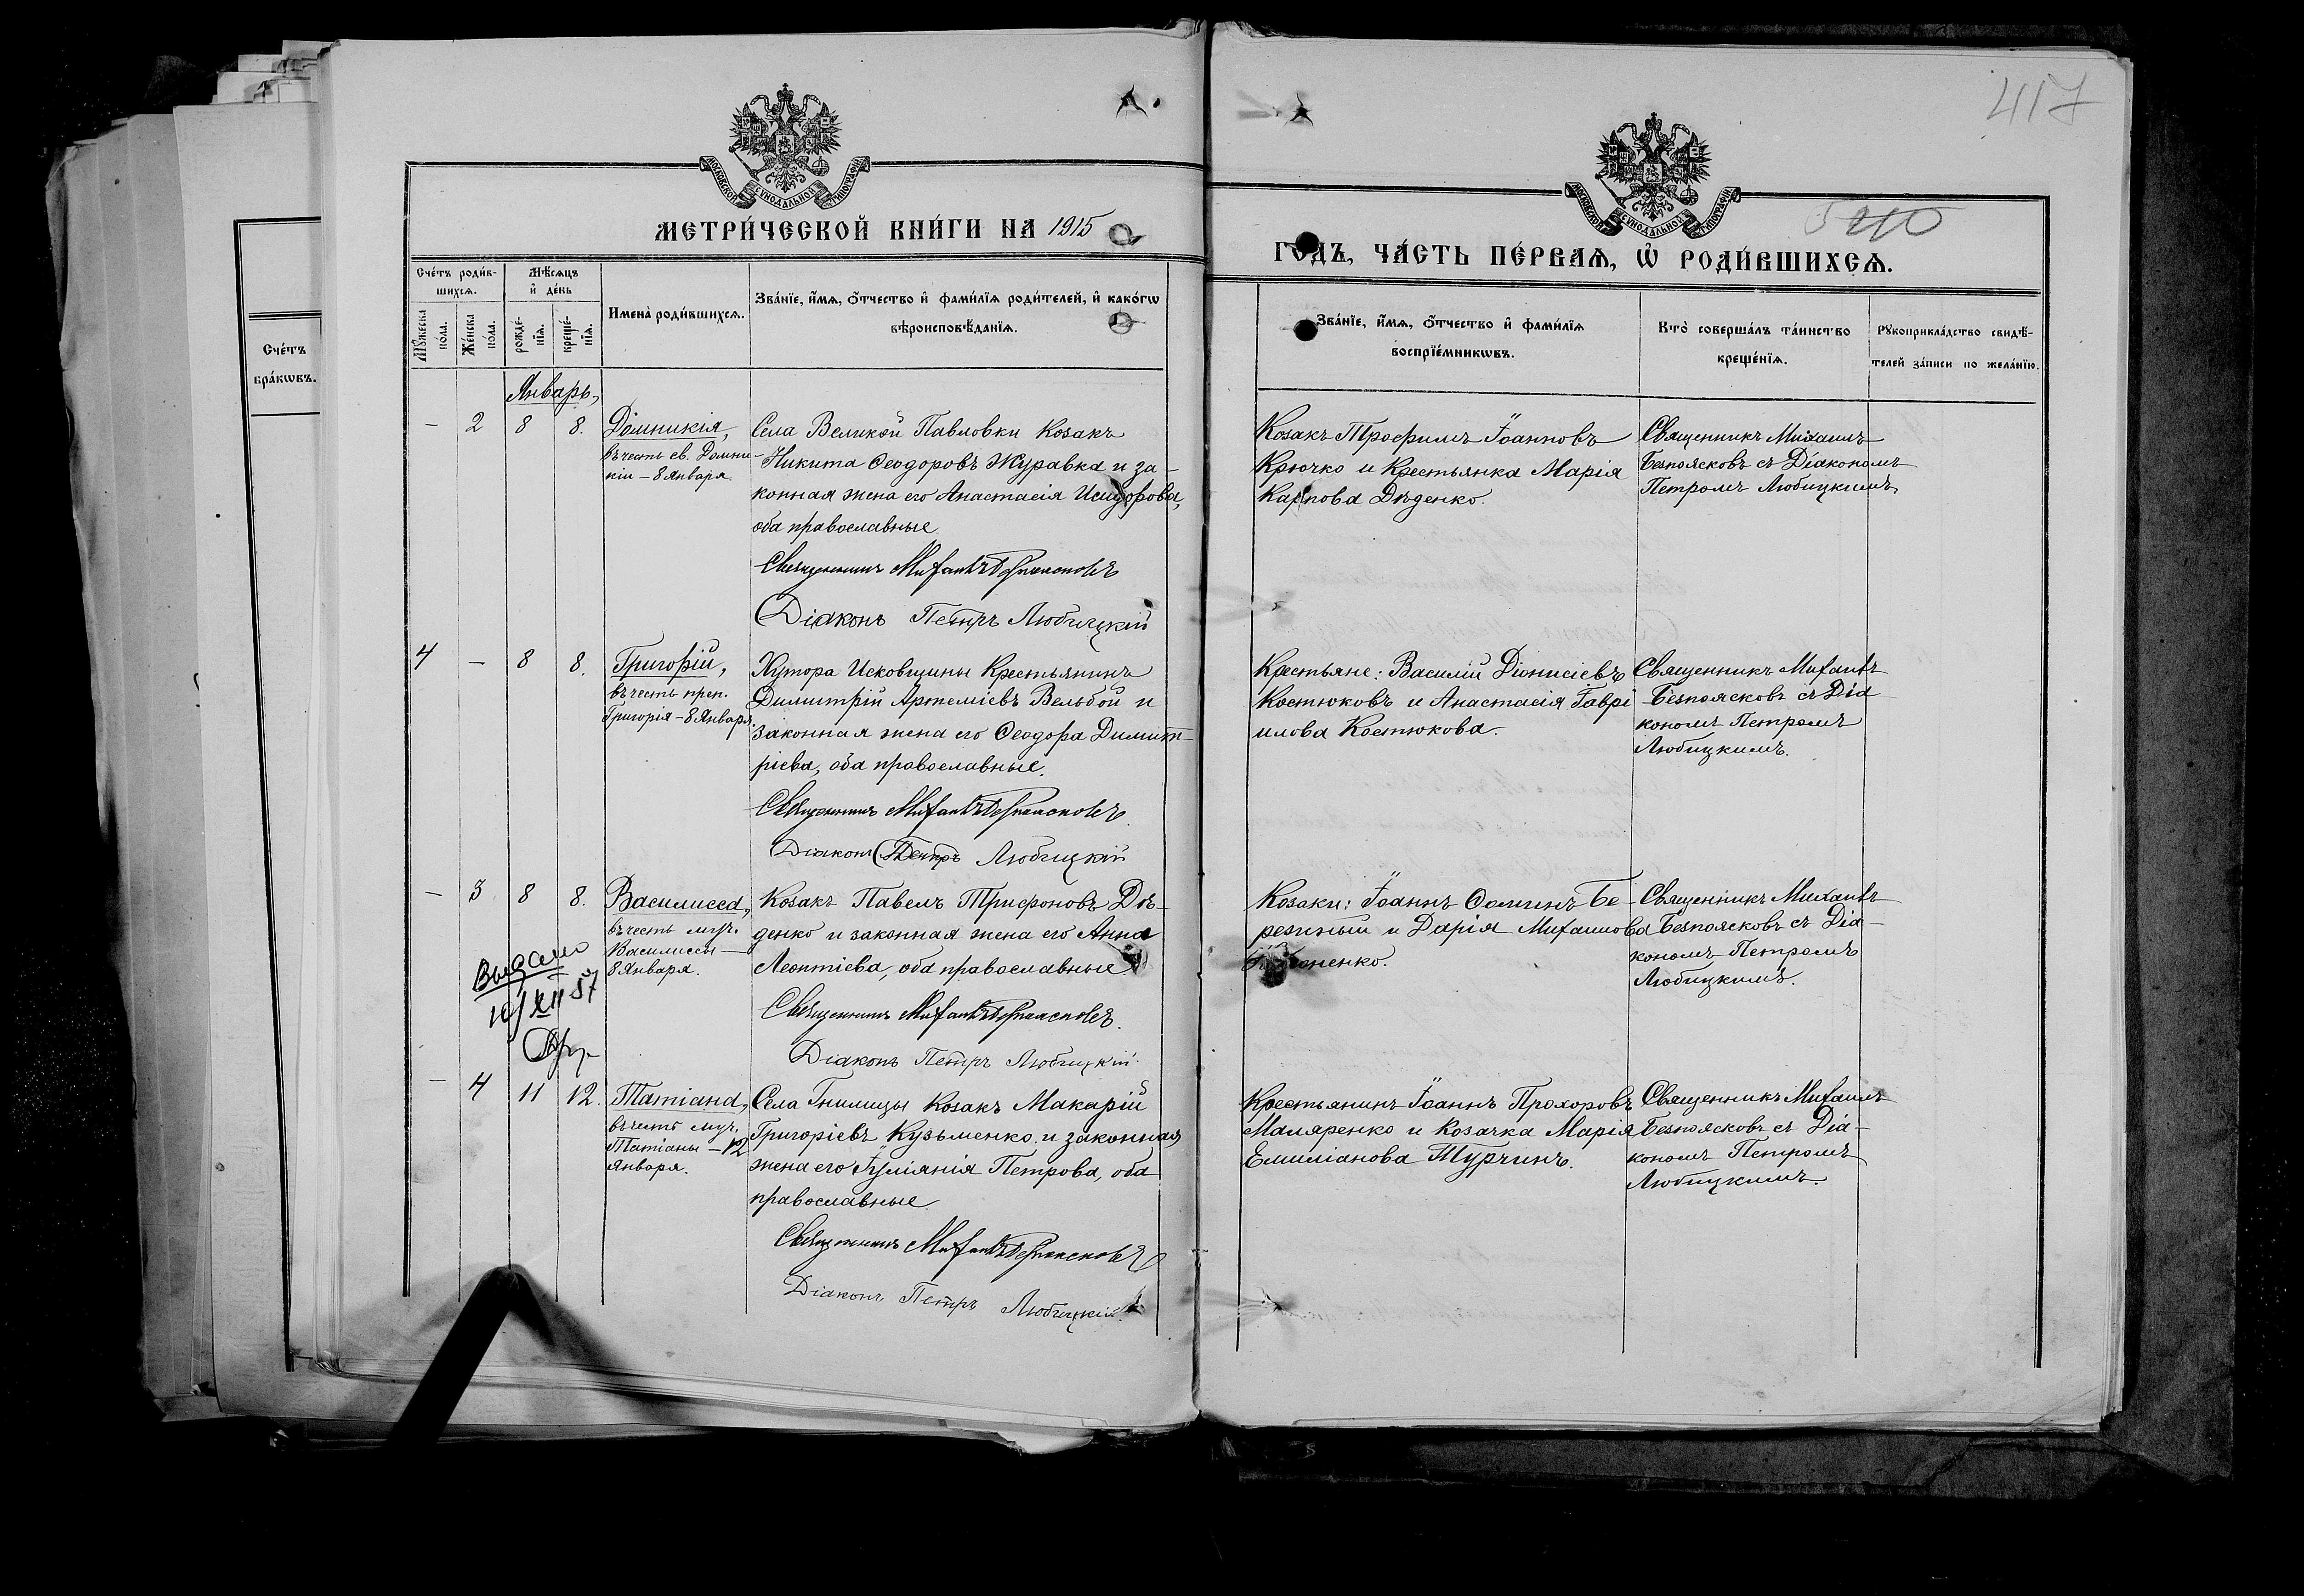 417
МОСКОВСКОЙ СѴНОДАЛЬНОЙ ТИПОГРАФІИ
МОСКОВСКОЙ СѴНОДАЛЬНОЙ ТИПОГРАФІИ
МЕТРИ́ЧЕСКОЙ КНИ́ГИ НА 1915
ГОДЪ, ЧА́СТЬ ПЕ́РВАѦ, Ѡ҆ РОДИ́ВШИХСѦ.
Сче́тъ
бра́кωвъ.
Сче́тъ роди́в-
шихсѧ.
Мѣ́сѧцъ
и҆ де́нь
Мꙋ́жеска
по́ла.
Же́нска
по́ла.
рожде-
нїѧ.
креще́-
нїѧ.
Имена̀ роди́вшихсѧ.
Зва́нїе, и҆́мѧ, ѻ҆́тчество и҆ фами́лїѧ роди́телей, и҆ како́гѡ
вѣроисповѣ́данїѧ.
Зва́нїе, и҆́мѧ, ѻ҆́тчество и҆ фами́лїѧ
воспрїе́мникѡвъ.
Кто̀ соверша́лъ та́инство
креще́нїѧ.
Рꙋкоприкла́дство свидѣ́-
телей за́писи по жела́нїю.
Январь,
— 2 8 8.
Домникія,
въ честь св. Домни-
кіи — 8 Января.
Села Великой Павловки Козакъ
Никита Ѳеодоровъ Журавка и за-
конная жена его Анастасія Исидорова,
оба православные
Священникъ Михаилъ Безпоясковъ
Діаконъ Петръ Любицкій
Козакъ Трофимъ Іоанновъ
Крючко и Крестьянка Марія
Карпова Дѣденко.
Священникъ Михаилъ
Безпоясковъ съ Діакономъ
Петромъ Любицкимъ.
4 — 8 8.
Григорій,
въ честь преп.
Григорія — 8 Января.
Хутора Исковщины Крестьянинъ
Димитрій Артеміевъ Вельбой и
законная жена его Ѳеодора Димит-
ріева, оба православные.
Священникъ Михаилъ Безпоясковъ
Діаконъ Петръ Любицкій
Крестьяне: Василій Діонисіевъ
Костюковъ и Анастасія Гаврі
илова Костюкова.
Священникъ Михаилъ
Безпоясковъ съ Діа
кономъ Петромъ
Любицкимъ.
— 3 8 8.
Василисса,
въ честь муч.
Василиссы —
8 Января.
Козакъ Павелъ Трифоновъ Дѣ-
денко и законная жена его Анна
Леонтіева, оба православные.
Священникъ Михаилъ Безпоясковъ.
Діаконъ Петръ Любицкій
Козаки: Іоаннъ Ѳоминъ Бе-
резный и Дарія Михаилова
Священникъ Михаилъ
Безпоясковъ съ Діа-
кономъ Петромъ
Любицкимъ.
XII 57
— 4 11 12.
Татіана,
въ честь муч.
Татіаны — 12
Января.
Села Гнилицы Козакъ Макарій
Григоріевъ Кузьменко и законная
жена его Іуліанія Петрова, оба
православные
Священникъ Михаилъ Безпоясковъ
Діаконъ Петръ Любицкій.
Крестьянинъ Іоаннъ Прохоровъ
Маляренко и Козачка Марія
Емиліанова Турчинъ.
Священникъ Михаилъ
Безпоясковъ съ Діа-
кономъ Петромъ
Любицкимъ.